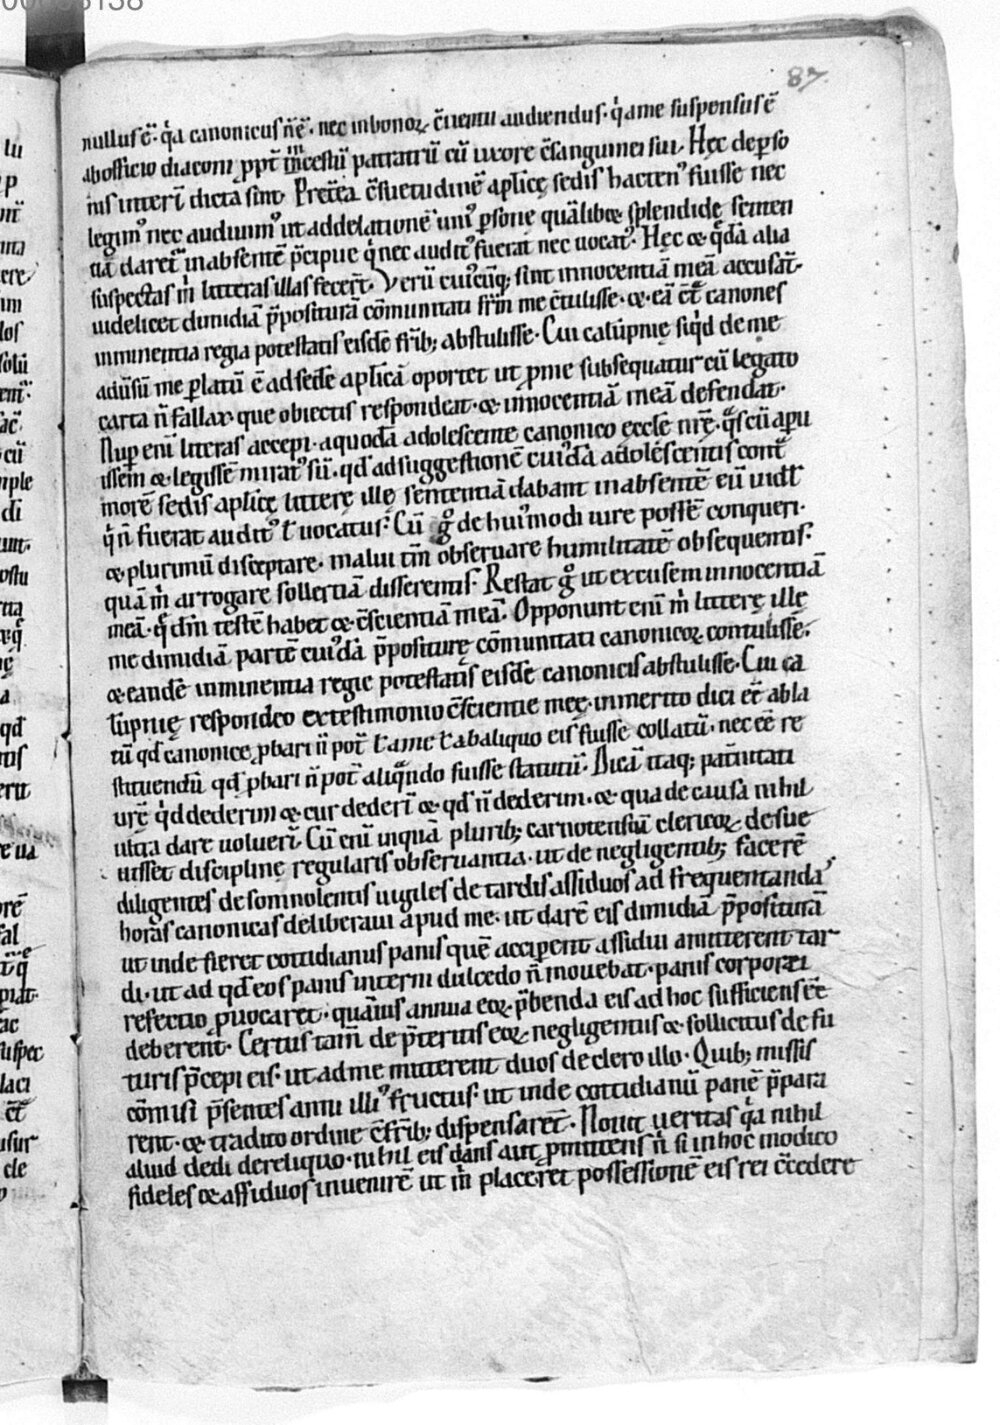 87
nullus ē. q̇a canonicus n̄ ē. nec in bonoꝝ c̄uentu audiendus. q̇a me suspensus ē
ab officio diaconi ꝓpt̄ incestū patratū cū uxore c̄sanguinei sui. Hęc de ꝑso
nis interī dicta sint. Pret̄ea c̄suetudinē aplīcę sedis hacten᾽ fuisse nec
legim᾽ nec audiuim᾽ ut ad delationē uni᾽ ꝑsone quālibet splendidę senten
tiā daret in absentē p̄cipue q̇ nec audit᾽ fuerat nec uocat᾽. Hęc & q̇dā alia
suspectas m̄ litteras illas fecer̄t. Verū cui᾽cūq; sint innocentiā meā accusāt.
uidelicet dimidiā p̄positurā cōmunitati fr̄m me c̄tulisse. & eā c̄t̄ canones
imminentia regia potestatis eisdē frīb; abstulisse. Cui calūpnię siq̇d de me
aduīsū me ꝑlatū ē ad sedē aplīcā oportet ut ꝓ me subsequatur cū legato
carta n̄ fallax. que obiectis respondeat. & innocentiā meā defendat.
Nuꝑ eni literas accepi. a quodā adolescente canonico eccl̄e nr̄ę. q̇s cū apu
issem & legissē mirat᾽ sū. qd̄ ad suggestionē cui᾽dā adolescentis cont̄
morē sedis aplīcę litterę illę sententiā dabant in absentē eū uidl̄
q̇ n̄ fuerat audit᾽ ł uocatus. Cū g̊ de hui᾽modi iure possē conqueri.
& plurimū disceptare. malui tm̄ obseruare humilitatē obsequentis.
quā m̄ arrogare sollertiā disserentis. Restat g̊ ut excusem innocentiā
meā. q̇ dm̄ testē habet & c̄scientiā meā. Opponunt eni m̄ litterę illę
me dimidiā partē cui᾽dā p̄positurę cōmunitati canonicoꝝ contulisse.
& eandē imminentia regie potestatis eisdē canonicis abstulisse. Cui ca
lūpnię respondeo ex testimonio c̄scientie meę. inmerito dici eē abla
tū qd̄ canonice ꝓbari n̄ pot̄ ł a me ł ab aliquo eis fuisse collatū. nec eē re
stituendū qd̄ ꝓbari n̄ pot̄ aliq̇ndo fuisse statutū. Dicā itaq; pat̄nitati
urę q̇d dederim & cur dederī & qd̄ n̄ dederim. & qua de causa nihil
ult̄a dare uoluerī. Cū eni inquā plurib; carnotensiū clericoꝝ desue
uisset disciplinę regularis obseruantia. ut de negligentib; facerē
diligentes de somnolentis uigiles de tardis assiduos ad frequentanda᾽
horas canonicas deliberaui apud me. ut darē eis dimidiā p̄posituram
ut inde fieret cottidianus panis quē acciꝑent assidui amitterent tar
di. ut ad qd̄ eos panis interni dulcedo n̄ mouebat. panis corporei
refectio ꝓuocaret. quāuis annua eoꝝ p̄benda eis ad hoc sufficiens eē
deberent. Certus tam̄ de p̄teritis eoꝝ negligentiis & sollicitus de fu
turis p̄cepi eis. ut ad me mitterent duos de clero illo. Quib; missis
cōmisi p̄sentes anni illi᾽ fructus. ut inde cottidianū panē p̄para
rent. & tradito ordine c̄frīb; dispensarēt. Nouit ueritas q̇a nihil
aliud dedi de reliquo. nihil eis dans aut ꝓmittens n̄ si in hoc modico
fideles & assiduos inuenirē ut m̄ placeret possessionē eis rei c̄cedere